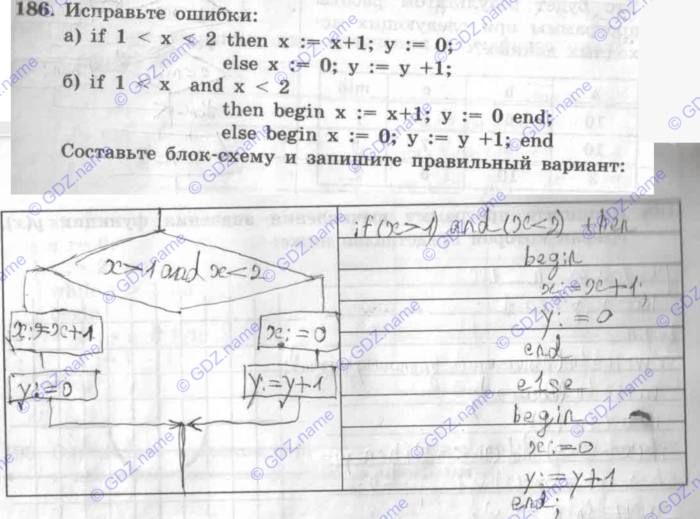 186. Исправьте ошибки:
а) if 1 < x < 2 then x := x+1; y := 0;
else x := 0; y := y +1;
б) if 1 < x and x < 2
then begin x := x+1; y := 0 end;
else begin x := 0; y := y +1; end
Составьте блок-схему и запишите правильный вариант:
x>1 and x<2
x:=x+1
y:=0
x:=0
y:=y+1
if (x>1) and (x<2) then
begin
x:=x+1;
y:=0
end
else
begin
x:=0
y:=y+1
end;
© GDZ.name